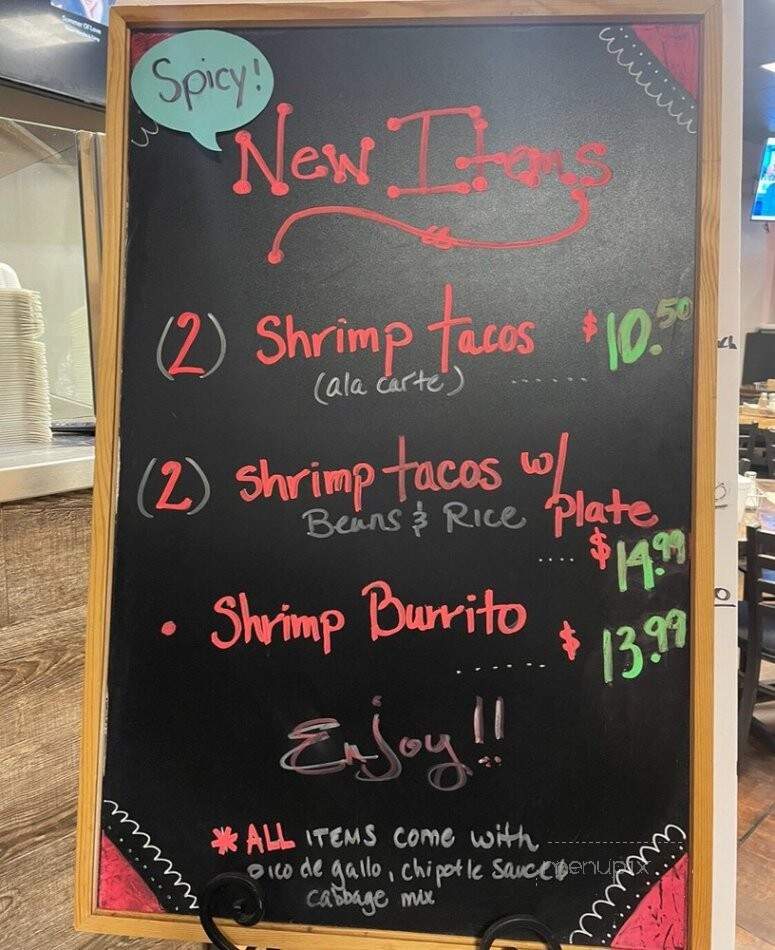 Summer Of Love
Spicy!
New Items
(2) Shrimp tacos $10.50
(ala carte) ......
(2) Shrimp tacos w/
Beans & Rice plate
.... $14.99
• Shrimp Burrito
....... $13.99
Enjoy!!
*ALL ITEMS come with
pico de gallo, chipotle sauce,
cabbage mix
menupix